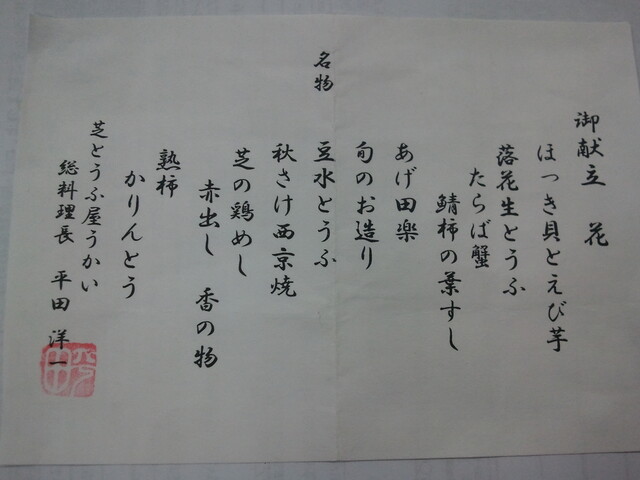 御献立 花
ほっき貝とえび芋
落花生とうふ
たらば蟹
鯖柿の葉すし
あげ田楽
旬のお造り
名物 豆水とうふ
秋さけ西京焼
芝の鶏めし
赤出し 香の物
熟柿
かりんとう
芝とうふ屋うかい
総料理長 平田 洋一